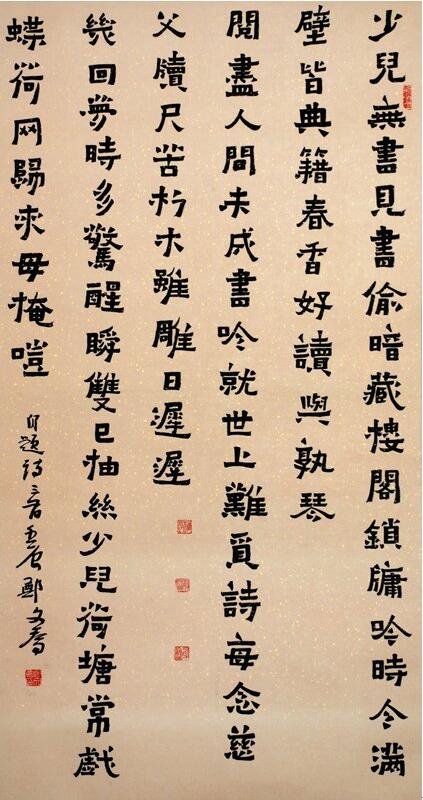 少兒無書見書偷暗藏樓閣鎖牖吟時今滿
壁皆典籍春香好讀與孰琴
閱盡人間未成書吟就世上難覓詩每念慈
父牘尺苦朽木雖雕日遲遲
幾回夢時多驚醒瞬雙已抽絲少兒荷塘常戲
蝶荷网歸來毋掩
自題詩三首壬辰鄭文